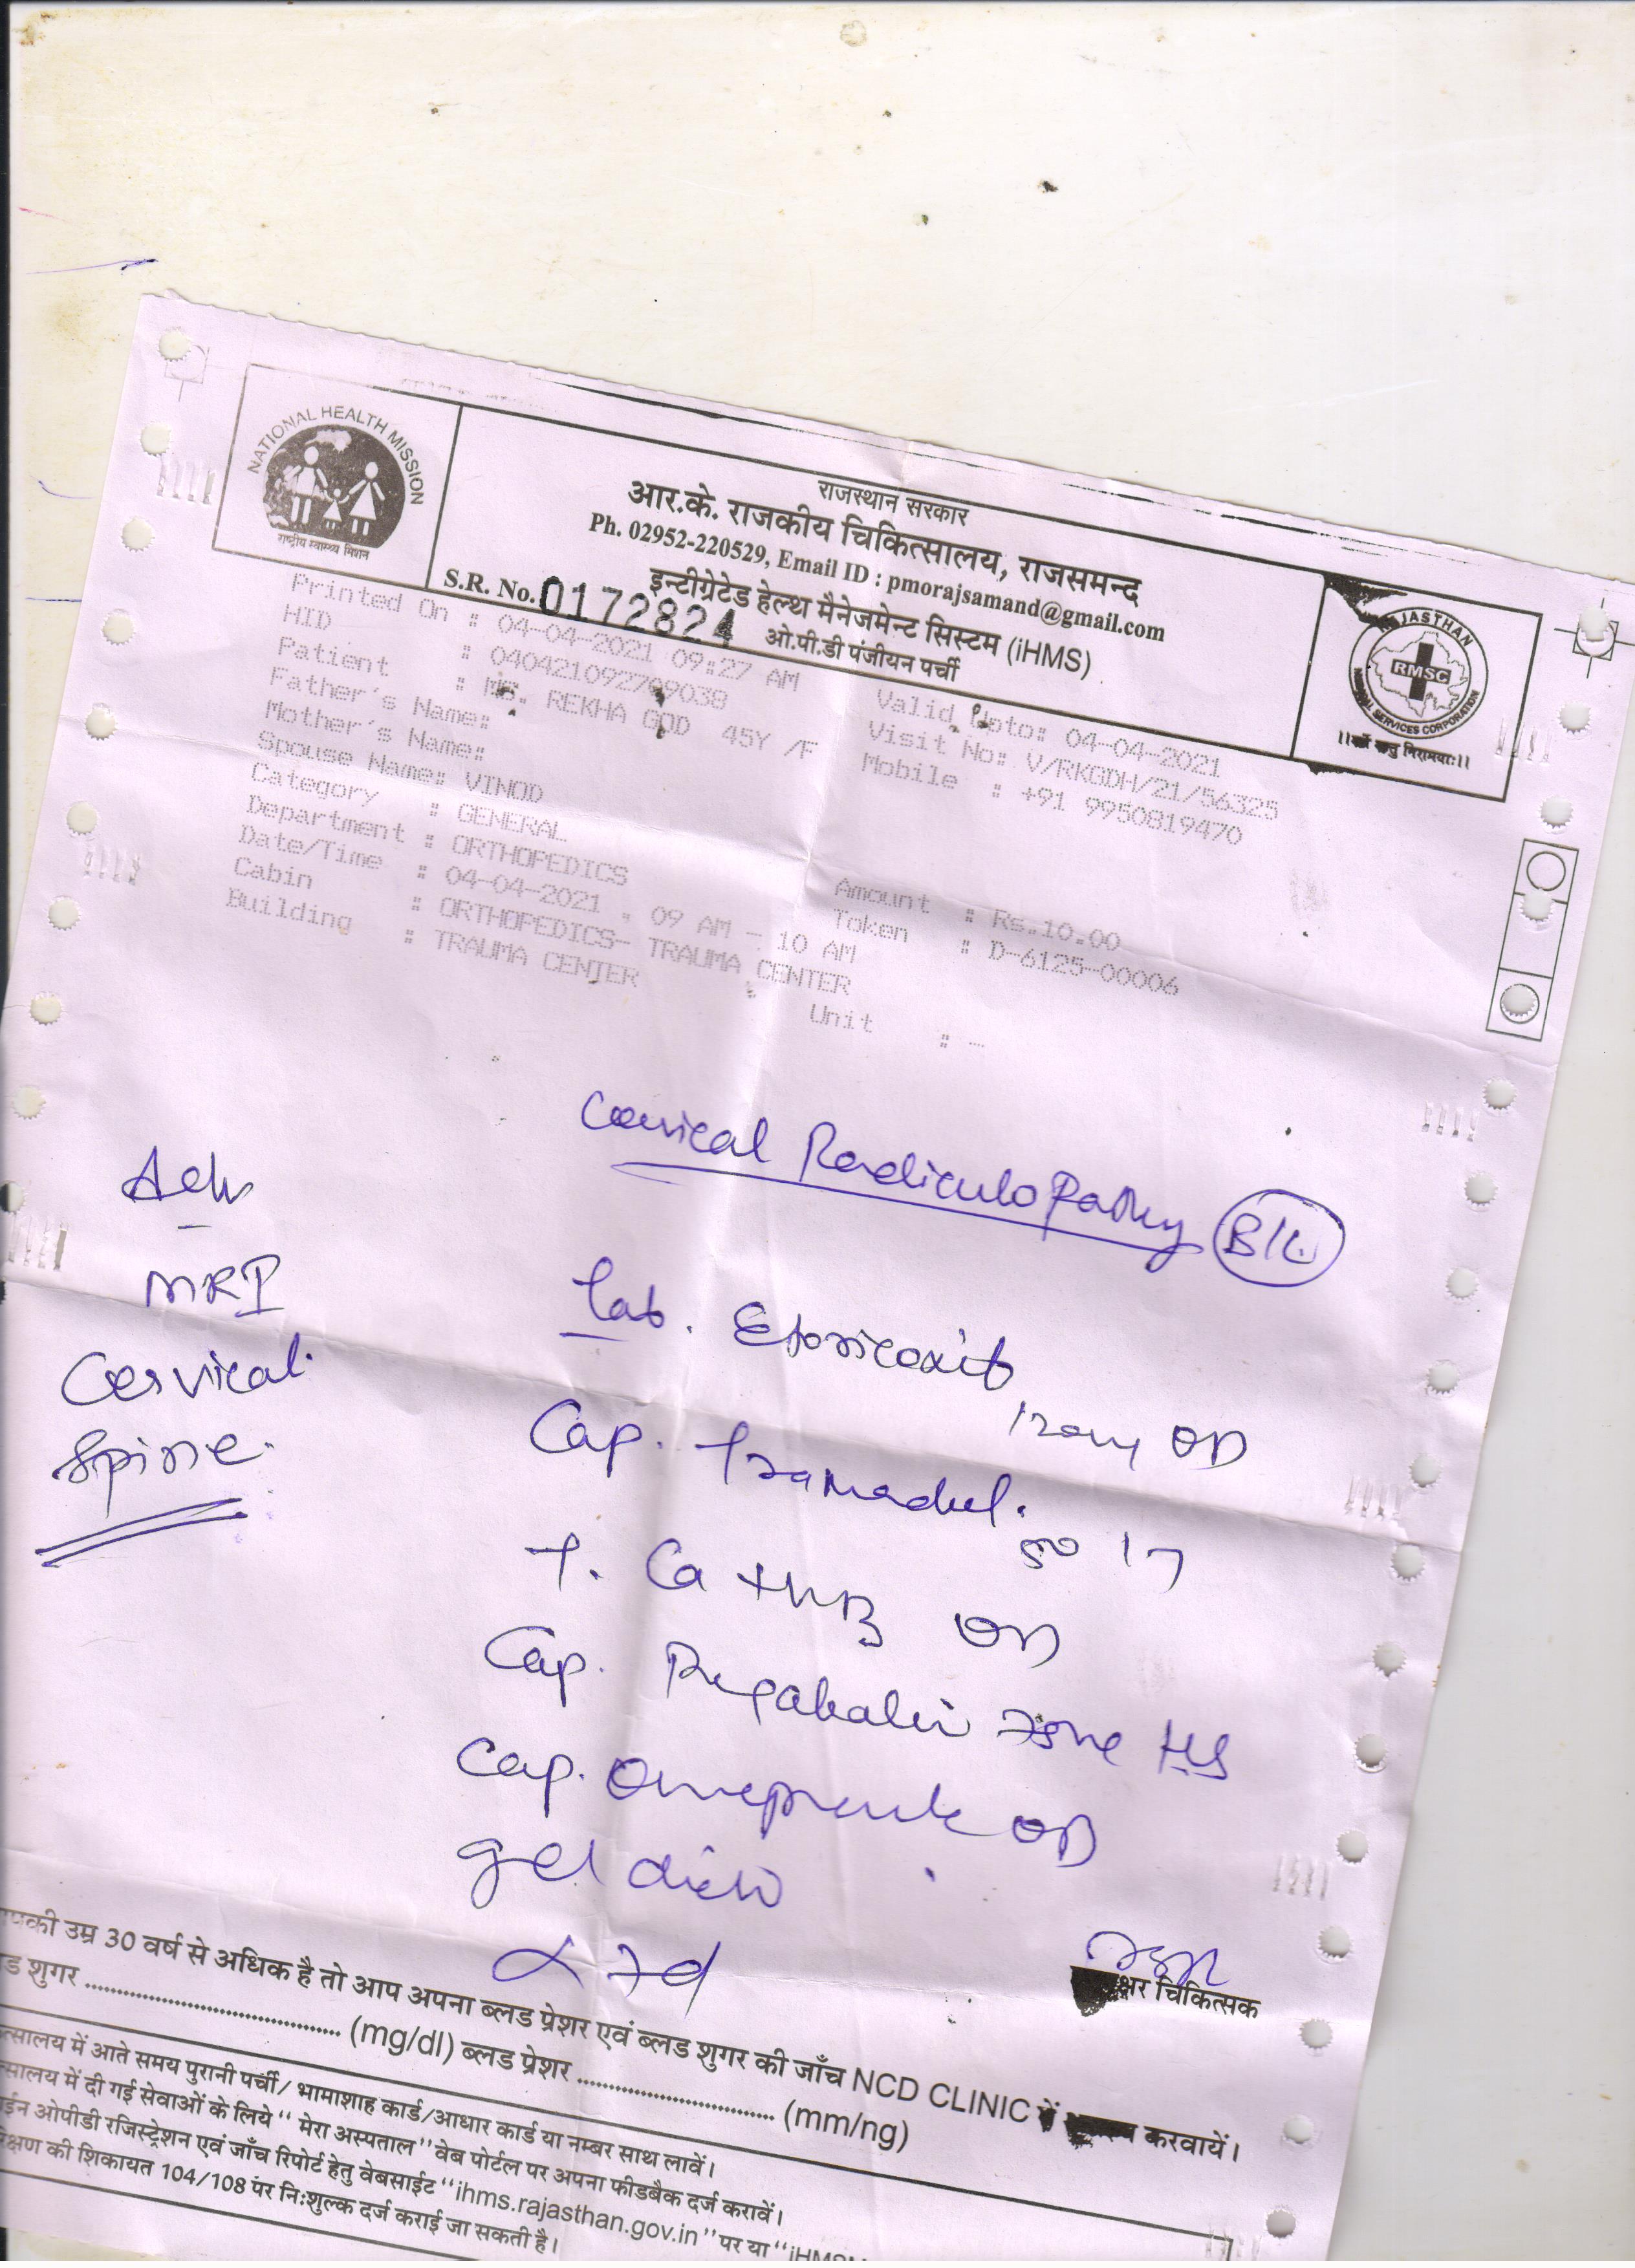 NATIONAL HEALTH MISSION
राष्ट्रीय स्वास्थ्य मिशन
राजस्थान सरकार
आर.के. राजकीय चिकित्सालय, राजसमन्द
Ph. 02952-220529, Email ID : pmorajsamand@gmail.com
इन्टीग्रेटेड हेल्थ मैनेजमेन्ट सिस्टम (iHMS)
S.R. No. 0172824 ओ.पी.डी पंजीयन पर्ची
RAJASTHAN
RMSC
MEDICAL SERVICES CORPORATION
निरामयाः।।
Printed On : 04-04-2021 09:27 AM
Valid Upto: 04-04-2021
HID :
Visit No: V/RKGDH/21/56325
Patient : REKHA 45Y /F
Mobile : +91 9950819470
Father's Name:
Mother's Name:
Spouse Name: VINOD
Category : GENERAL
Department : ORTHOPEDICS
Amount : Rs.10.00
Date/Time : 04-04-2021 , 09 AM - 10 AM
Token : D-6125-00006
Cabin : ORTHOPEDICS- TRAUMA CENTER
Building : TRAUMA CENTER
Unit : --
Cervical Radiculopathy B/L
Adv
MRI
Cervical
Spine
Tab. Etoricoxib
120mg OD
Cap. Tramadol.
50
T. Ca + OD
Cap. Pregabalin 75mg HS
Cap. Omeprazole OD
gel diclo
उम्र 30 वर्ष से अधिक है तो आप अपना ब्लड प्रेशर एवं ब्लड शुगर की जाँच NCD CLINIC में करवायें।
चिकित्सक
शुगर .................... (mg/dl) ब्लड प्रेशर .................... (mm/ng)
में आते समय पुरानी पर्ची/ भामाशाह कार्ड/आधार कार्ड या नम्बर साथ लावें।
में दी गई सेवाओं के लिये "मेरा अस्पताल" वेब पोर्टल पर अपना फीडबैक दर्ज करावें।
ओपीडी रजिस्ट्रेशन एवं जाँच रिपोर्ट हेतु वेबसाईट "ihms.rajasthan.gov.in" पर या
की शिकायत 104/108 पर निःशुल्क दर्ज कराई जा सकती है।